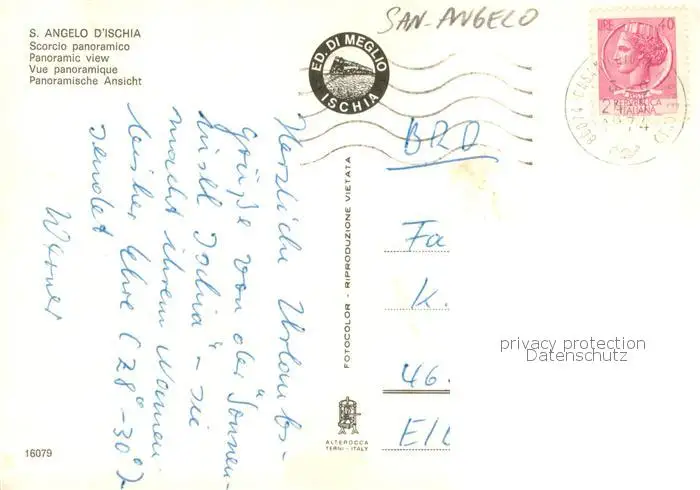 S. ANGELO D'ISCHIA
Scorcio panoramico
Panoramic view
Vue panoramique
Panoramische Ansicht
SAN-ANGELO
ED. DI MEGLIO
ISCHIA
LIRE 40
REPUBBLICA
ITALIANA
Herzliche Urlaubs-
Grüße von der "Sonnen-
insel Ischia" - sie
macht ihrem Namen
bisher Ehre (28°-30°)
sendet
Werner
BRD
Fa
K.
46.
EIL
FOTOCOLOR - RIPRODUZIONE VIETATA
ALTEROCCA
TERNI - ITALY
16079
privacy protection
Datenschutz